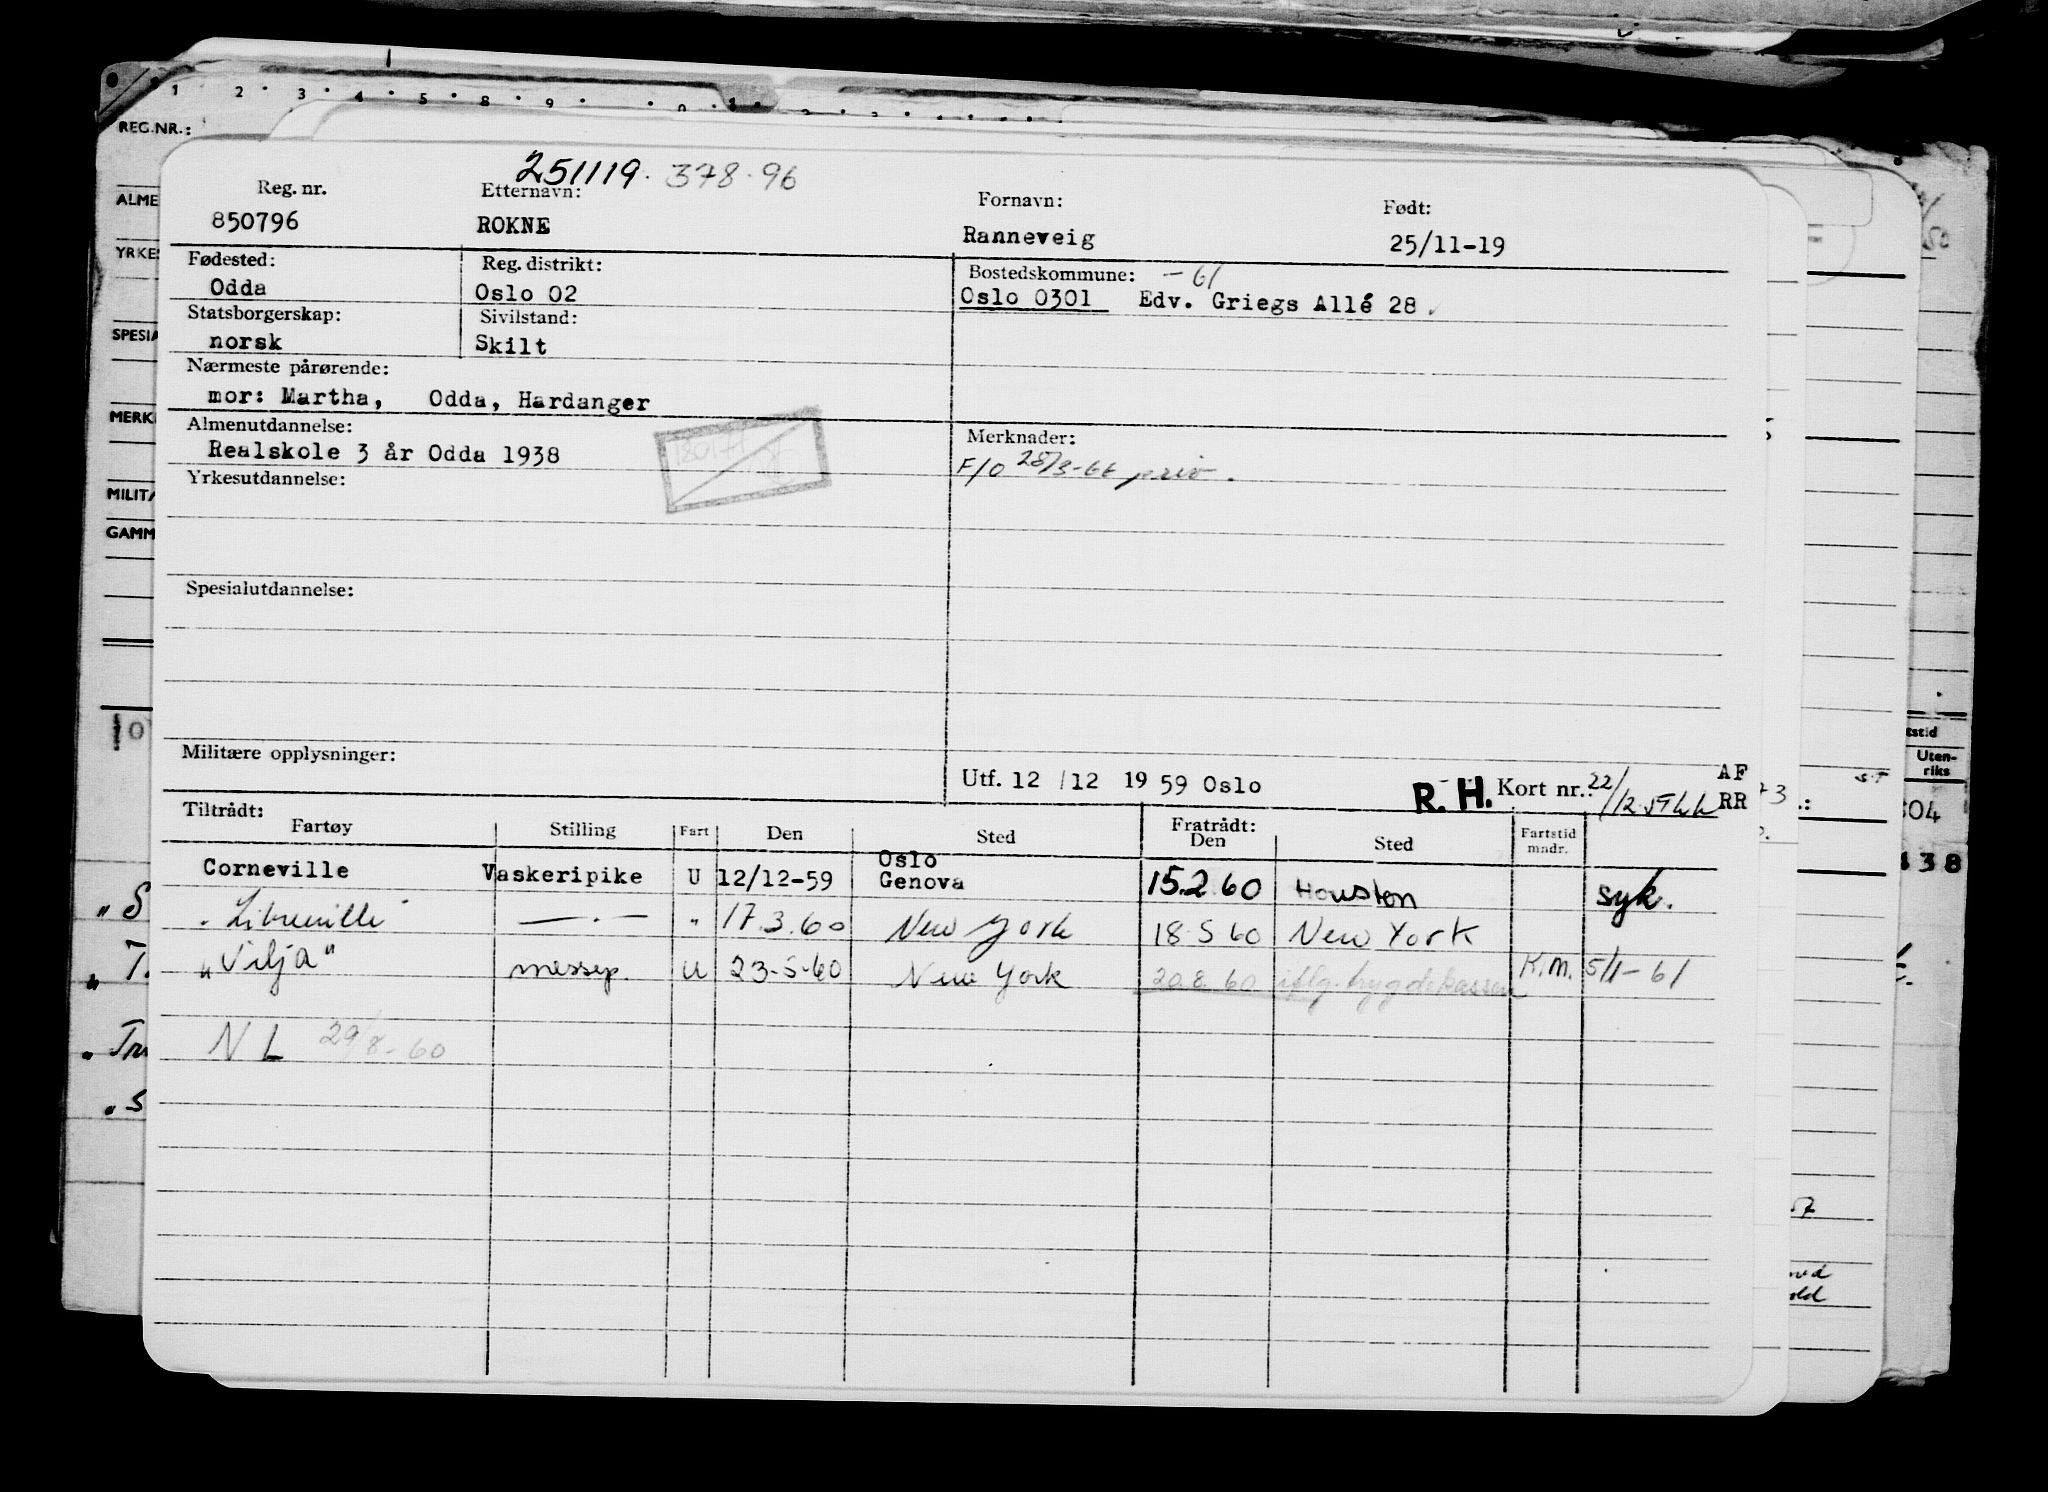 1 2 3 4 5 8 9
REG.NR.:
ALME
YRKES
SPESIA
MERK
MILITÆ
GAMM
251119. 378.96
Reg. nr. Etternavn: Fornavn: Født:
850796 ROKNE Ranneveig 25/11-19
Fødested: Reg. distrikt: Bostedskommune: -61
Odda Oslo 02 Oslo 0301 Edv. Griegs Allé 28
Statsborgerskap: Sivilstand:
norsk Skilt
Nærmeste pårørende:
mor: Martha, Odda, Hardanger
Almenutdannelse: Merknader:
Realskole 3 år Odda 1938 F/O 28/3-66 priv.
Yrkesutdannelse:
Spesialutdannelse:
Militære opplysninger:
Utf. 12 / 12 19 59 Oslo R. H. Kort nr.: 22/12 AF RR
Tiltrådt: Fratrådt:
Fartøy Stilling Fart Den Sted Den Sted Fartstid mndr.
Corneville Vaskeripike U 12/12-59 Oslo Genova 15.2.60 Houston syk.
"Libreville" — " — " 17.3.60 New York 18.5 60 New York
"Vilja" messep. U 23-5-60 New York 20.8.60 iflg. trygdekassen K.M. 5/1-61
N L 29/8-60
tstid
Uten-
riks
304
438